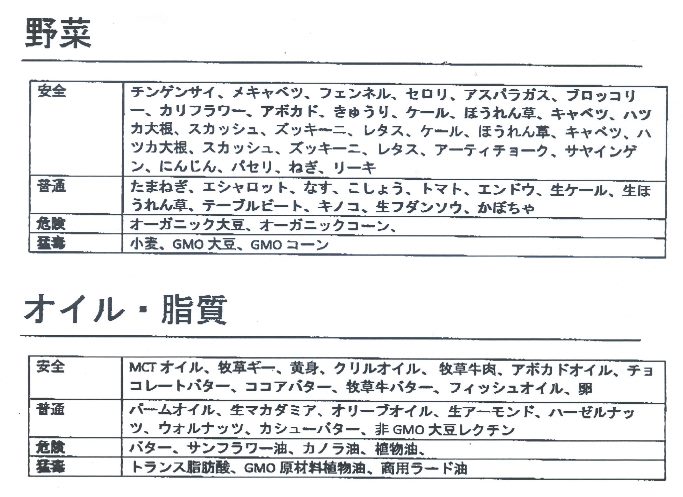 野菜
安全 テンゲンサイ、メキャベツ、フェンネル、セロリ、アスパラガス、ブロッコリ
ー、カリフラワー、アボカド、きゅうり、ケール、ほうれん草、キャベツ、ハツ
カ大根、スカッシュ、ズッキーニ、レタス、ケール、ほうれん草、キャベツ、ハ
ツカ大根、スカッシュ、ズッキーニ、レタス、アーティチョーク、サヤインゲ
ン、にんじん、パセリ、ねぎ、リーキ
普通 たまねぎ、エシャロット、なす、こしょう、トマト、エンドウ、生ケール、生ほ
うれん草、テーブルビート、キノコ、生フダンソウ、かぼちゃ
危険 オーガニック大豆、オーガニックコーン、
猛毒 小麦、GMO 大豆、GMO コーン
オイル・脂質
安全 MCT オイル、牧草ギー、黄身、クリルオイル、牧草牛肉、アボカドオイル、チョ
コレートバター、ココアバター、牧草牛バター、フィッシュオイル、卵
普通 パームオイル、生マカダミア、オリーブオイル、生アーモンド、ハーゼルナッ
ツ、ウォルナッツ、カシューバター、非 GMO 大豆レクチン
危険 バター、サンフラワー油、カノラ油、植物油、
猛毒 トランス脂肪酸、GMO 原材料植物油、商用ラード油